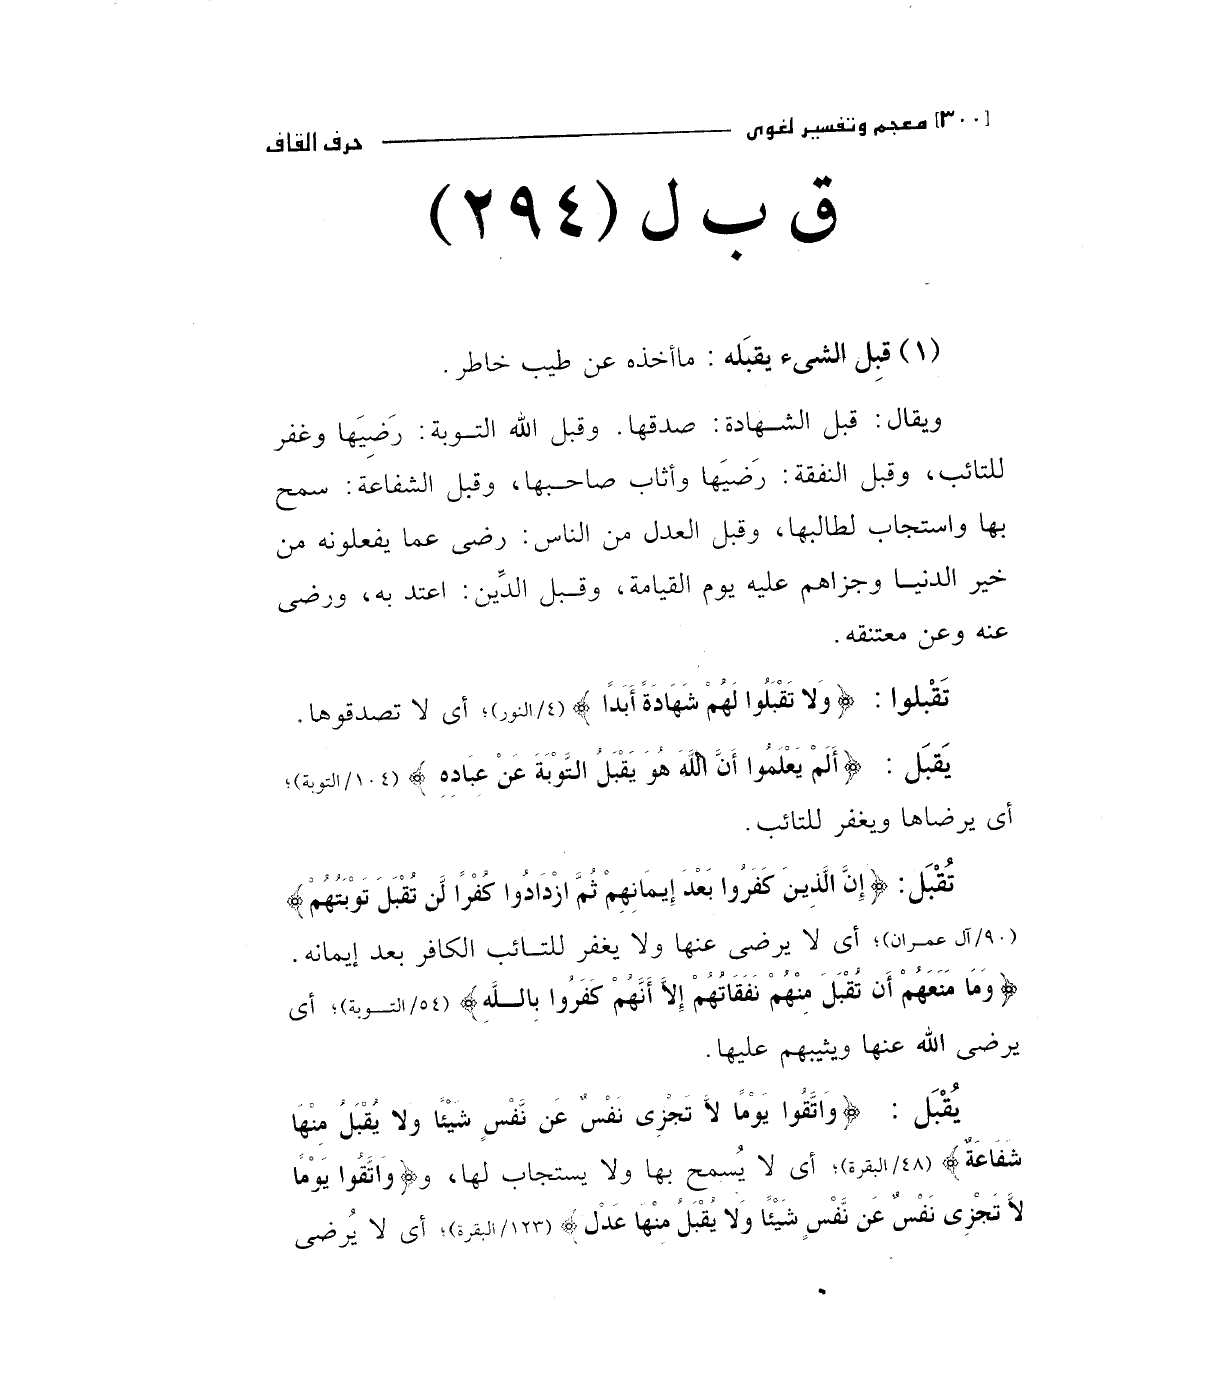 [٣٠٠] معجم وتفسير لغوى حرف القاف
ق ب ل (٢٩٤)
(١) قبِل الشىء يقبَله : ماأخذه عن طيب خاطر .
ويقال: قبل الشهادة: صدقها. وقبل الله التوبة: رَضِيَها وغفر
للتائب، وقبل النفقة: رَضيَها وأثاب صاحبها، وقبل الشفاعة: سمح
بها واستجاب لطالبها، وقبل العدل من الناس: رضى عما يفعلونه من
خير الدنيا وجزاهم عليه يوم القيامة، وقبل الدِّين: اعتد به، ورضى
عنه وعن معتنقه.
تَقْبلوا : ﴿ وَلا تَقْبَلُوا لَهُمْ شَهَادَةً أَبَدًا ﴾ (٤/النور)؛ أى لا تصدقوها.
يَقبَل : ﴿ أَلَمْ يَعْلَمُوا أَنَّ اللَّهَ هُوَ يَقْبَلُ التَّوْبَةَ عَنْ عِبَادِهِ ﴾ (١٠٤/التوبة)؛
أى يرضاها ويغفر للتائب.
تُقْبَل: ﴿ إِنَّ الَّذِينَ كَفَرُوا بَعْدَ إِيمَانِهِمْ ثُمَّ ازْدَادُوا كُفْرًا لَّن تُقْبَلَ تَوْبَتُهُمْ﴾
(٩٠/آل عمران)؛ أى لا يرضى عنها ولا يغفر للتائب الكافر بعد إيمانه.
﴿ وَمَا مَنَعَهُمْ أَن تُقْبَلَ مِنْهُمْ نَفَقَاتُهُمْ إِلاَّ أَنَّهُمْ كَفَرُوا بِاللَّهِ﴾ (٥٤/التوبة)؛ أى
يرضى الله عنها ويثيبهم عليها.
يُقْبَل : ﴿ وَاتَّقُوا يَوْمًا لاَّ تَجْزِى نَفْسٌ عَن نَّفْسٍ شَيْئًا وَلا يُقْبَلُ مِنْهَا
شَفَاعَةٌ ﴾ (٤٨/البقرة)؛ أى لا يُسمح بها ولا يستجاب لها، و﴿ وَاتَّقُوا يَوْمًا
لاَّ تَجْزِى نَفْسٌ عَن نَّفْسٍ شَيْئًا وَلا يُقْبَلُ مِنْهَا عَدْل ﴾ (١٢٣/البقرة)؛ أى لا يُرضى